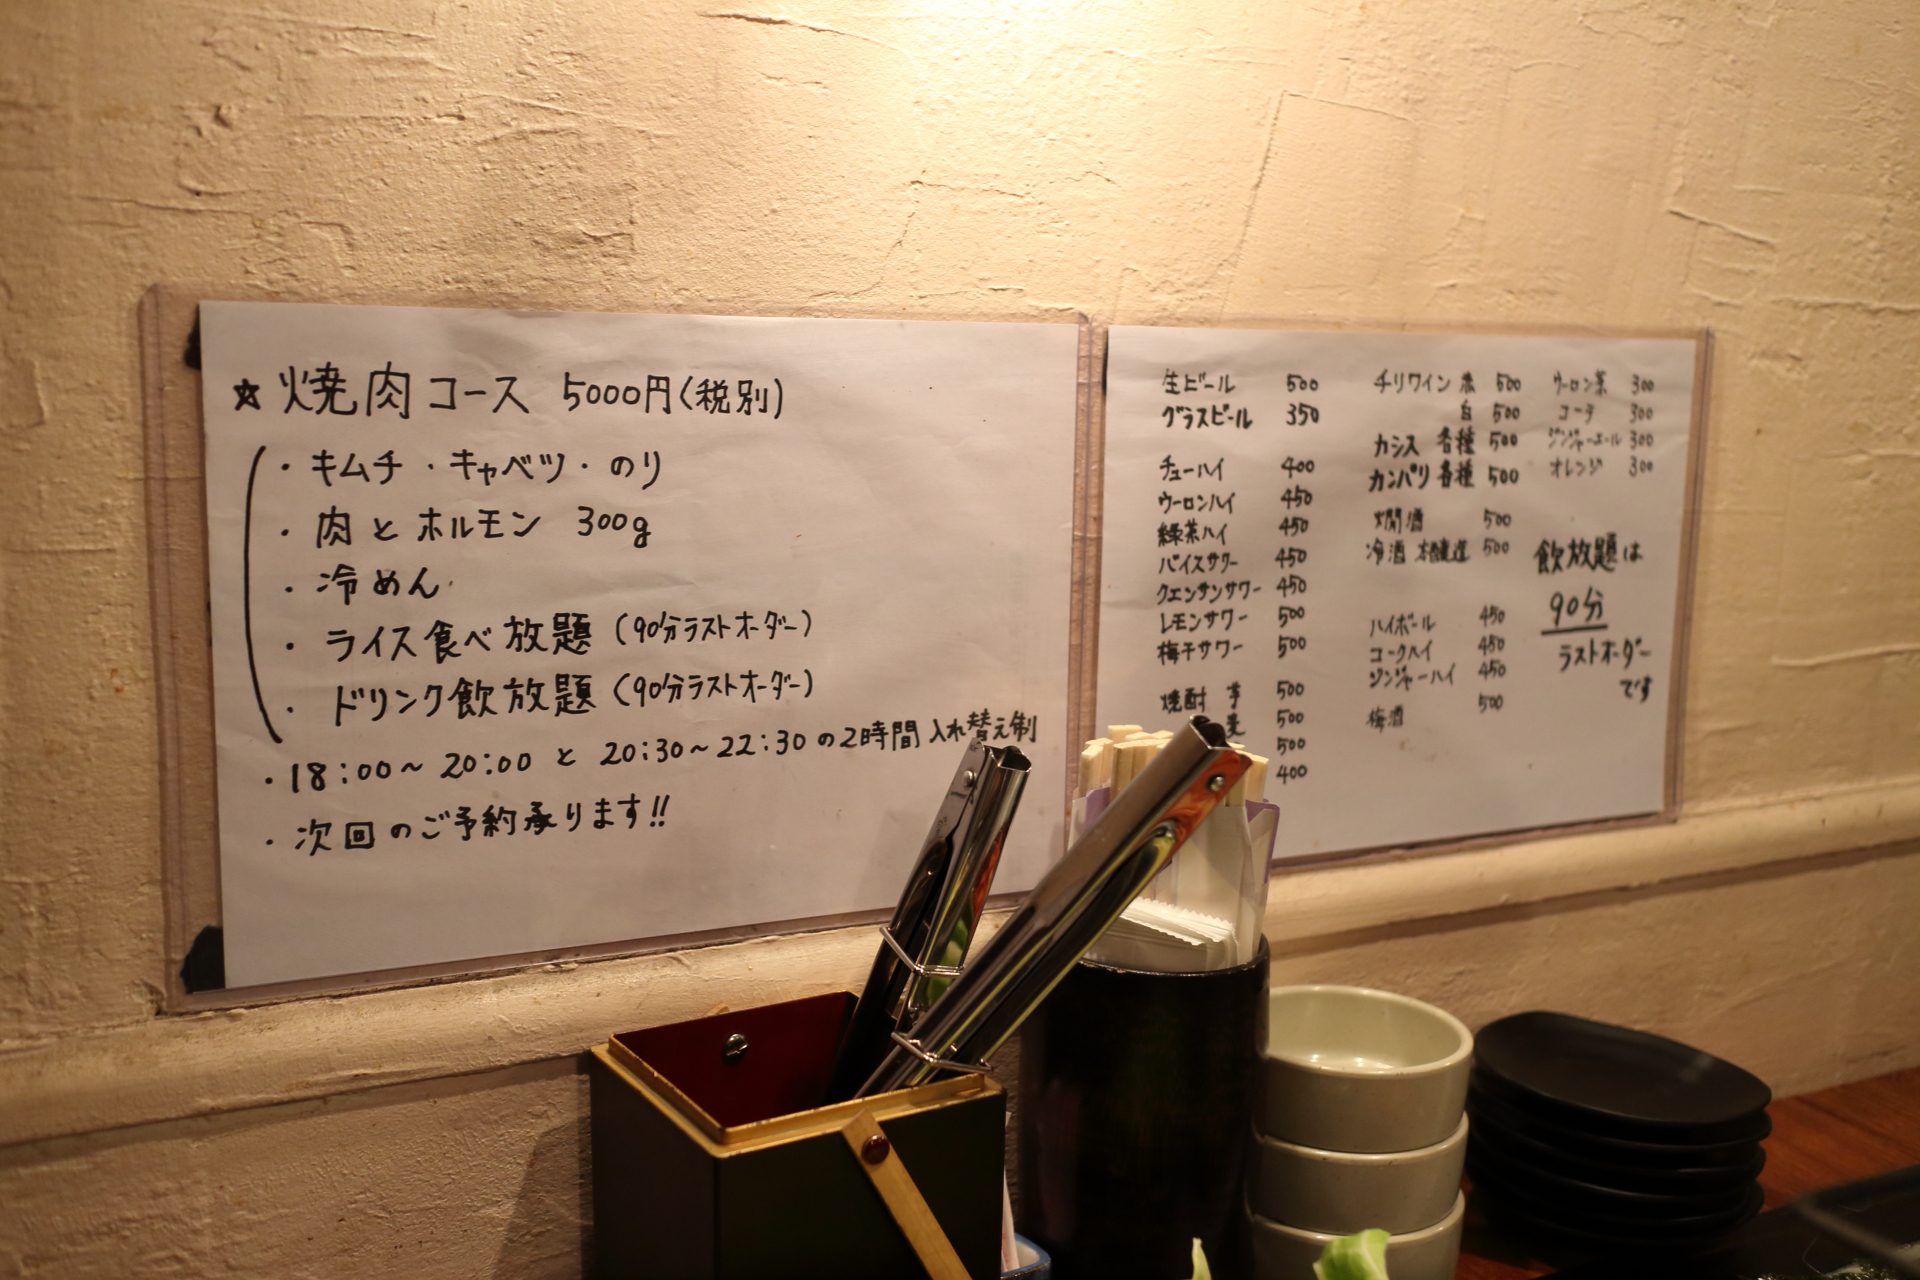 ☆焼肉コース 5000円(税別)
・キムチ・キャベツ・のり
・肉とホルモン 300g
・冷めん
・ライス食べ放題(90分ラストオーダー)
・ドリンク飲放題(90分ラストオーダー)
・18:00～20:00と20:30～22:30の2時間入れ替え制
・次回のご予約承ります!!
生ビール 500
グラスビール 350
チューハイ 400
ウーロンハイ 450
緑茶ハイ 450
バイスサワー 450
クエンサンサワー 450
レモンサワー 500
梅干サワー 500
焼酎 芋 500
麦 500
500
400
チリワイン 赤 500
白 500
カシス 各種 500
カンパリ各種 500
燗酒 500
冷酒 本醸造 500
ハイボール 450
コークハイ 450
ジンジャーハイ 450
梅酒 500
ウーロン茶 300
コーラ 300
ジンジャーエール 300
オレンジ 300
飲放題は
90分
ラストオーダー
です